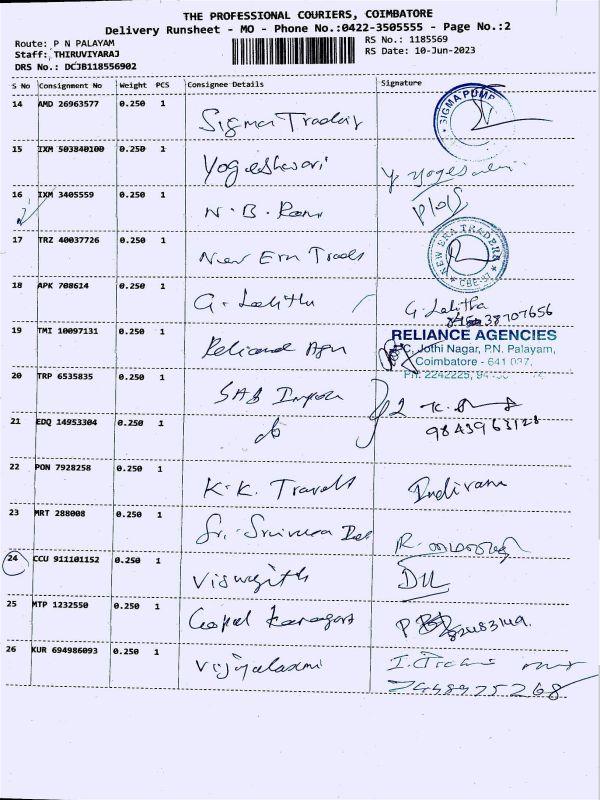 THE PROFESSIONAL COURIERS, COIMBATORE
Delivery Runsheet - MO - Phone No.:0422-3505555 - Page No.:2
Route: P N PALAYAM
RS No.: 1185569
Staff: THIRUVIYARAJ
RS Date: 10-Jun-2023
DRS No.: DCJB118556902
S No Consignment No Weight PCS Consignee Details Signature
14 AMD 26963577 0.250 1
Sigma Traders
SIGMA PUMP
15 IXM 503840100 0.250 1
Yogeshwari
16 IXM 3405559 0.250 1
N. B.
17 TRZ 40037726 0.250 1
New Era Trads
NEW ERA TRADERS CBE-37
18 APK 708614 0.250 1
G. Lalitha G. Lalitha
38707656
19 TMI 10097131 0.250 1
RELIANCE AGENCIES
Jothi Nagar, P.N. Palayam,
Coimbatore - 641 037,
Ph: 2242225,
20 TRP 6535835 0.250 1
SAB
21 EDQ 14953304 0.250 1
do
22 PON 7928258 0.250 1
K. K. Travels Indirani
23 MRT 288008 0.250 1
Sri. Srinivasa
24 CCU 911101152 0.250 1
Viswajith
25 MTP 1232550 0.250 1
Gopal
26 KUR 694986093 0.250 1
Vijayalaxmi